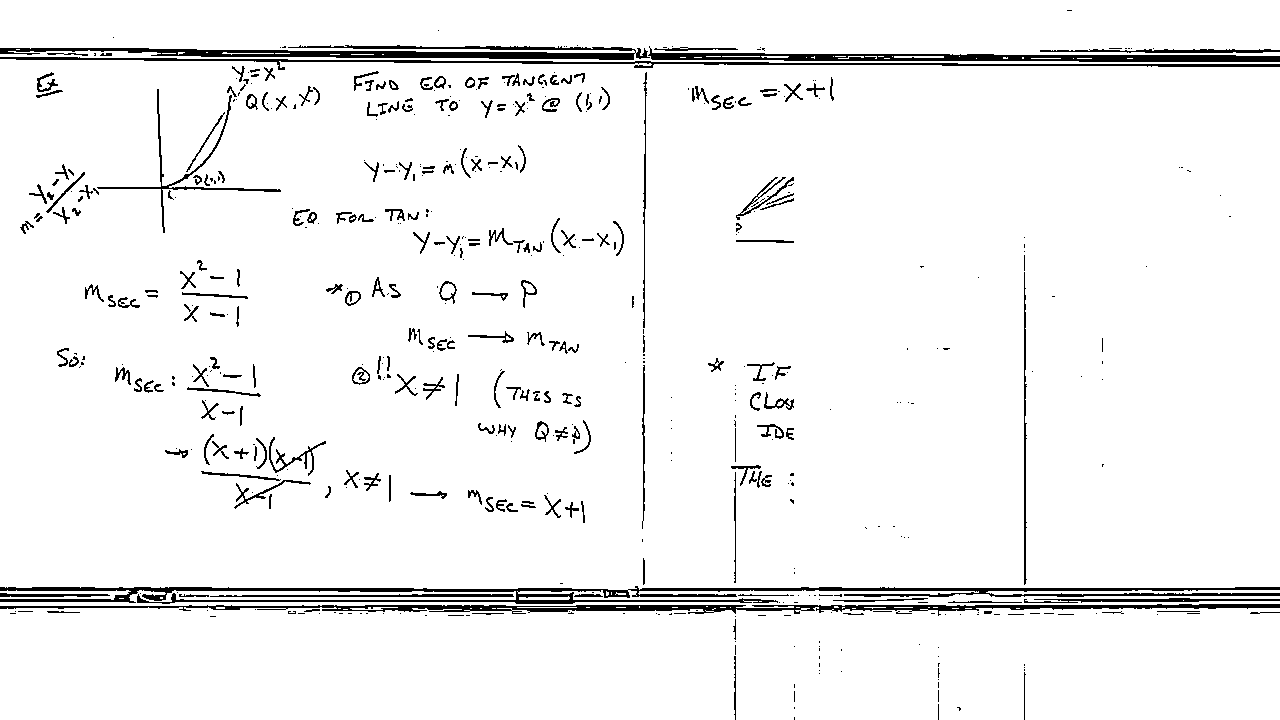 Ex
y = x²
Q(x, x²)
P(1,1)
m = y₂-y₁ / x₂-x₁
FIND EQ. OF TANGENT
LINE TO y = x² @ (1,1)
y-y₁ = m(x-x₁)
EQ FOR TAN:
y-y₁ = m_TAN (x-x₁)
m_SEC = x²-1 / x-1
* ① AS Q → P
m_SEC → m_TAN
So: m_SEC : x²-1 / x-1
② !! x ≠ 1 (THIS IS
WHY Q ≠ P)
→ (x+1)(x-1) / x-1 , x ≠ 1 → m_SEC = x+1
m_SEC = x+1
P
* IF
CLOS
IDE
THE :